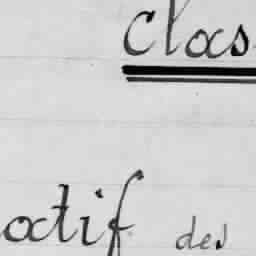 Clas
atif des